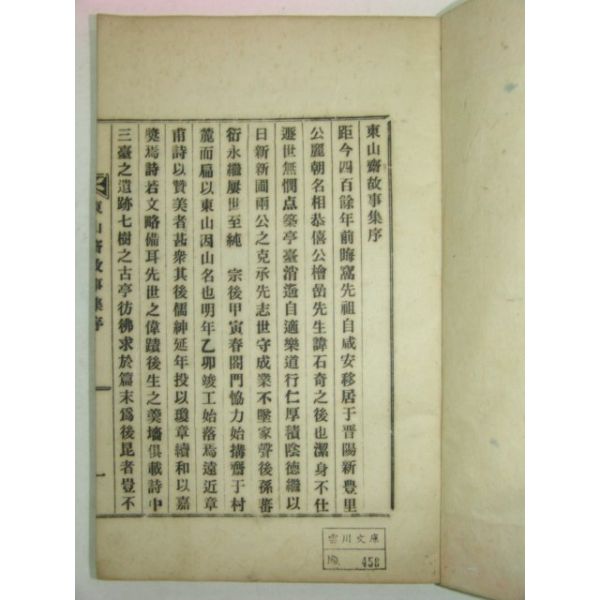 東山齋故事集序
距今四百餘年前晦窩先祖自咸安移居于晋陽新豊里
公麗朝名相恭僖公檜嵒先生諱石奇之後也潔身不仕
遯世無憫点築亭臺逍遙自適樂道行仁厚積陰德繼以
日新新圃兩公之克承先志世守成業不墜家聲後孫蕃
衍永繼屢世至純 宗後甲寅春閤門恊力始搆齋于村
麓而扁以東山因山名也明年乙卯竣工始落焉遠近章
甫詩以贊美者甚衆其後儒紳延年投以瓊章續和以嘉
奬焉詩若文略備耳先世之偉蹟後生之羹墻俱載詩中
三臺之遺跡七樹之古亭彷彿求於篇末爲後昆者豈不
東山齋故事集序
一
雲川文庫
No. 458